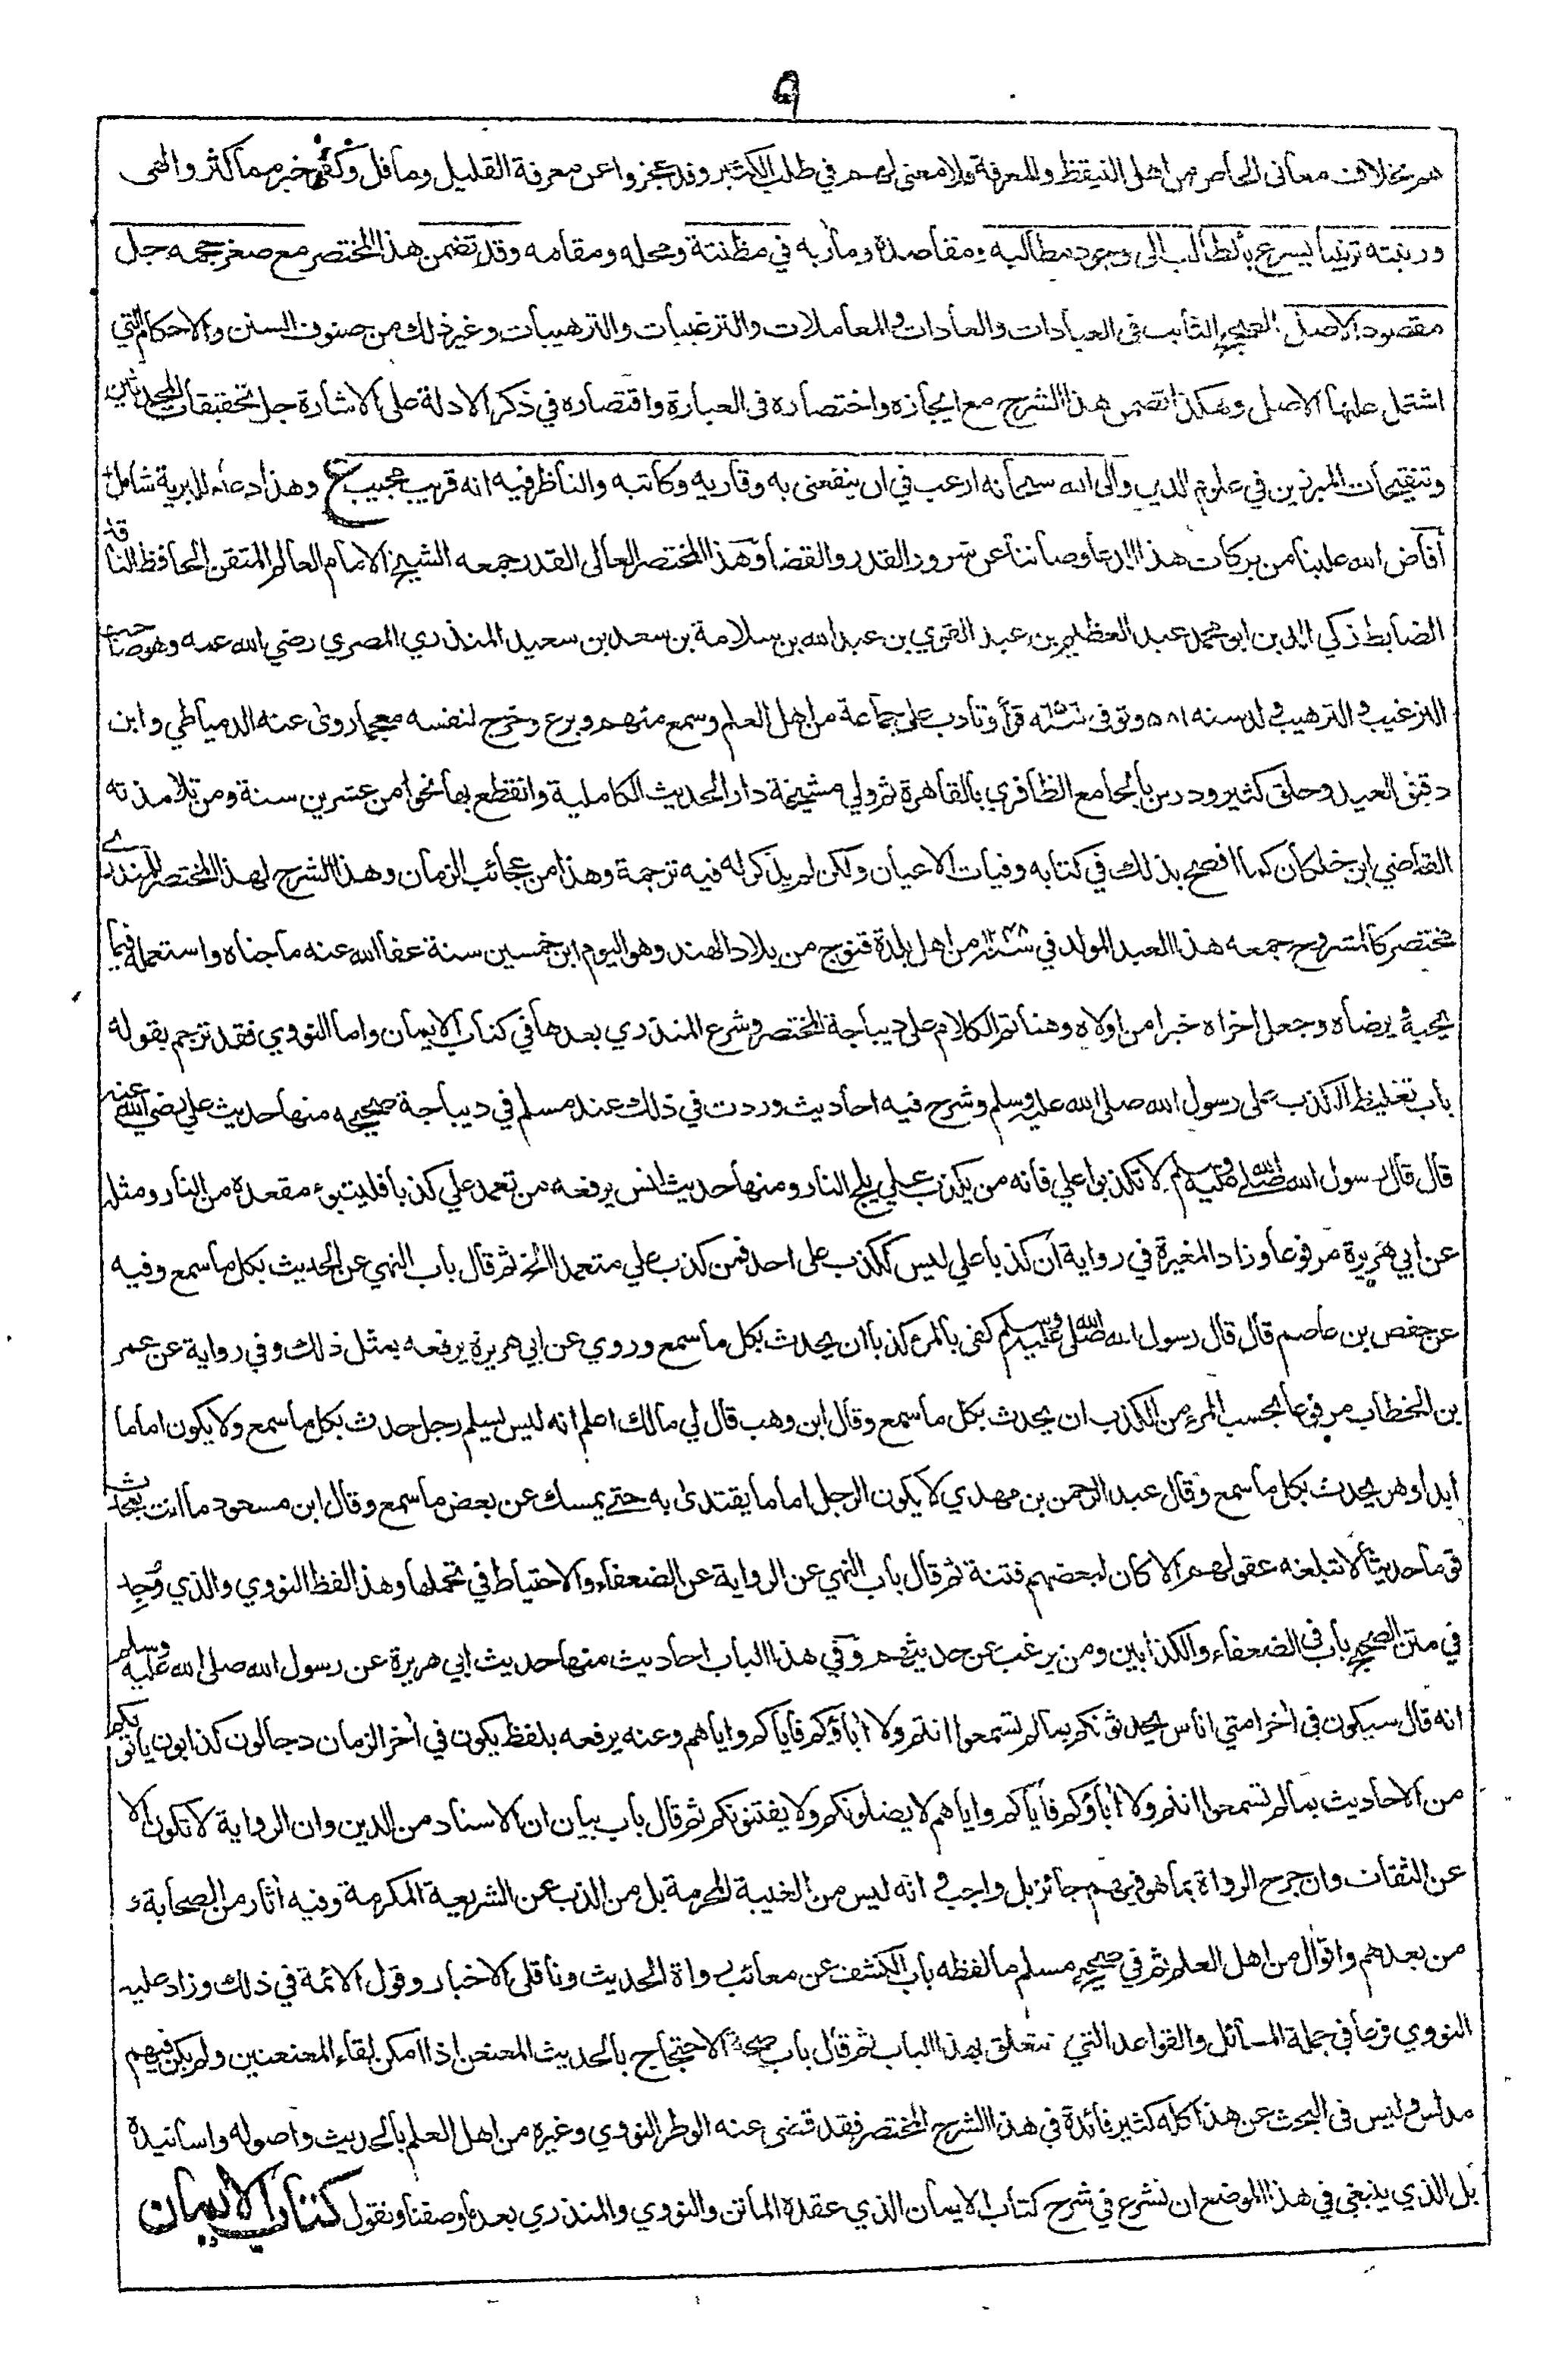 ٩
هم بخلاف معاني الخاص من اهل التيقظ والمعرفة فلا معنى لهم في طلب الاكثر وقد عجزوا عن معرفة القليل وما قل وكفى خير مما كثر والهى
ورتبته ترتيبا يسرع بالطالب الى وجود مطالبه ومقاصده ومأربه في مظنتة ومحله ومقامه وقد تضمن هذا المختصر مع صغر حجمه جل
مقصود الاصل الصحيح الثابت فى العبادات والعادات والمعاملات والترغيبات والترهيبات وغير ذلك من صنوف السنن والاحكام التي
اشتمل عليها الاصل وهكذا تضمن هذا الشرح مع ايجازه واختصاره فى العبارة واقتصاره في ذكر الادلة على الاشارة جل تحقيقات المحدثين
وتنقيحات المبرزين في علوم الدين والى الله سبحانه ارغب في ان ينفعنى به وقاريه وكاتبه والناظر فيه انه قريب مجيب ع وهذا دعاء للبرية شامل
أفاض الله علينا من بركات هذا الدعا وصاننا عن شرور القدر والقضا وهذا المختصر العالى القدر جمعه الشيخ الامام العالم المتقن الحافظ الناقد
الضابط زكي الدين ابو محمد عبد العظيم بن عبد القوي بن عبد الله بن سلامة بن سعد بن سعيد المنذري المصري رضي الله عنه وهو صاحب
الترغيب والترهيب ولد سنه ٥٨١ وتوفى قرأ وتأدب على جماعة من اهل العلم وسمع منهم وبرع وخرج لنفسه معجما روى عنه الدمياطي وابن
دقيق العيد وخلق كثير ودرس بالجامع الظافري بالقاهرة ثم ولي مشيخة دار الحديث الكاملية وانقطع بها نحوا من عشرين سنة ومن تلامذته
القاضي ابن خلكان كما افصح بذلك في كتابه وفيات الاعيان ولكن لم يذكر له فيه ترجمة وهذا من عجائب الزمان وهذا الشرح لهذا المختصر للمنذري
مختصر كالمشروح جمعه هذا العبد المولد في سنة ١٢٤٨ من اهل بلدة قنوج من بلاد الهند وهو اليوم ابن خمسين سنة عفا الله عنه ما جناه واستعمله فيما
يحبه ويرضاه وجعل اخراه خيرا من اولاه وهنا تم الكلام على ديباجة المختصر وشرع المنذري بعدها في كتاب الايمان واما النووي فقد ترجم بقوله
باب تغليظ الكذب على رسول الله صلى الله عليه وسلم وشرح فيه احاديث وردت في ذلك عند مسلم في ديباجة صحيحه منها حديث علي رضي الله عنه
قال قال رسول الله صلى الله عليه وسلم لا تكذبوا علي فانه من يكذب علي يلج النار ومنها حديث انس يرفعه من تعمد علي كذبا فليتبوء مقعده من النار ومثله
عن ابي هريرة مرفوعا وزاد المغيرة في رواية ان كذبا علي ليس ككذب على احد فمن كذب علي متعمدا الخ ثم قال باب النهي عن الحديث بكل ما سمع وفيه
عن حفص بن عاصم قال قال رسول الله صلى الله عليه وسلم كفى بالمرء كذبا ان يحدث بكل ما سمع وروي عن ابي هريرة يرفعه بمثل ذلك وفي رواية عن عمر
بن الخطاب مرفوعا بحسب المرء من الكذب ان يحدث بكل ما سمع وقال ابن وهب قال لي مالك اعلم انه ليس يسلم رجل حدث بكل ما سمع ولا يكون اماما
ابدا وهو يحدث بكل ما سمع وقال عبد الرحمن بن مهدي لا يكون الرجل اماما يقتدى به حتى يمسك عن بعض ما سمع وقال ابن مسعود ما انت بمحدث
قوما حديثا لا تبلغه عقولهم الا كان لبعضهم فتنة ثم قال باب النهي عن الرواية عن الضعفاء والاحتياط في تحملها وهذا لفظ النووي والذي وُجِد
في متن الصحيح باب في الضعفاء والكذابين ومن يرغب عن حديثهم وفي هذا الباب احاديث منها حديث ابي هريرة عن رسول الله صلى الله عليه وسلم
انه قال سيكون في اخر امتي اناس يحدثونكم بما لم تسمعوا انتم ولا اباؤكم فاياكم واياهم وعنه يرفعه بلفظ يكون في اخر الزمان دجالون كذابون يأتونكم
من الاحاديث بما لم تسمعوا انتم ولا اباؤكم فاياكم واياهم لا يضلونكم ولا يفتنونكم ثم قال باب بيان ان الاسناد من الدين وان الرواية لا تكون الا
عن الثقات وان جرح الرواة بما هو فيهم جائز بل واجب و انه ليس من الغيبة المحرمة بل من الذب عن الشريعة المكرمة وفيه أثار من الصحابة و
من بعدهم واقوال من اهل العلم ثم في صحيح مسلم ما لفظه باب الكشف عن معائب رواة الحديث وناقلي الاخبار وقول الائمة في ذلك وزاد عليه
النووي فرعا في جملة المسائل والقواعد التي تتعلق بهذا الباب ثم قال باب صحة الاحتجاج بالحديث المعنعن اذا امكن لقاء المعنعنين ولم يكن فيهم
مدلس وليس فى البحث عن هذا كله كثير فائدة في هذا الشرح المختصر فقد قضى عنه الوطر النووي وغيره من اهل العلم بالحديث واصوله واسانيده
بل الذي ينبغي في هذا الموضع ان نشرع في شرح كتاب الايمان الذي عقده الماتن والنووي والمنذري بعده وصفنا ونقول كتاب الايمان